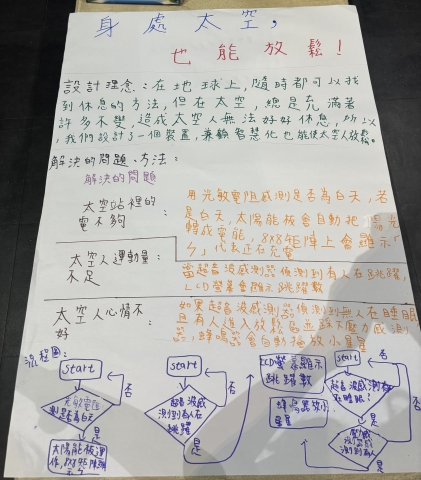 身處太空,
也能放鬆!
設計理念:在地球上,隨時都可以找
到休息的方法,但在太空,總是充滿著
許多不變,造成太空人無法好好休息,所以
,我們設計了一個裝置,兼顧智慧化也能使太空人放鬆。
解決的問題、方法:
解決的問題
太空站裡的
電不夠
用光敏電阻感測是否為白天,若
是白天,太陽能板會自動把陽光
轉成電能,8x8矩陣上會顯示「
ㄣ」代表正在充電
太空人運動量
不足
當超音波感測器偵測到有人在跳躍,
LCD螢幕會顯示跳躍數
太空人心情不
好
如果超音波感測器偵測到無人在睡眠
且有人進入放鬆區並踩下壓力感測
器,蜂鳴器會自動播放小星星
流程圖:
start
光敏電阻
測是否為白天
太陽能板運
作,8x8矩陣顯
示ㄣ
否
start
超音波感
測到有人在
跳躍
否
是
LCD螢幕顯示
跳躍數
蜂鳴器放小
星星
start
超音波感測有
在睡眠?
否
是
壓力感
測器感
測到有人